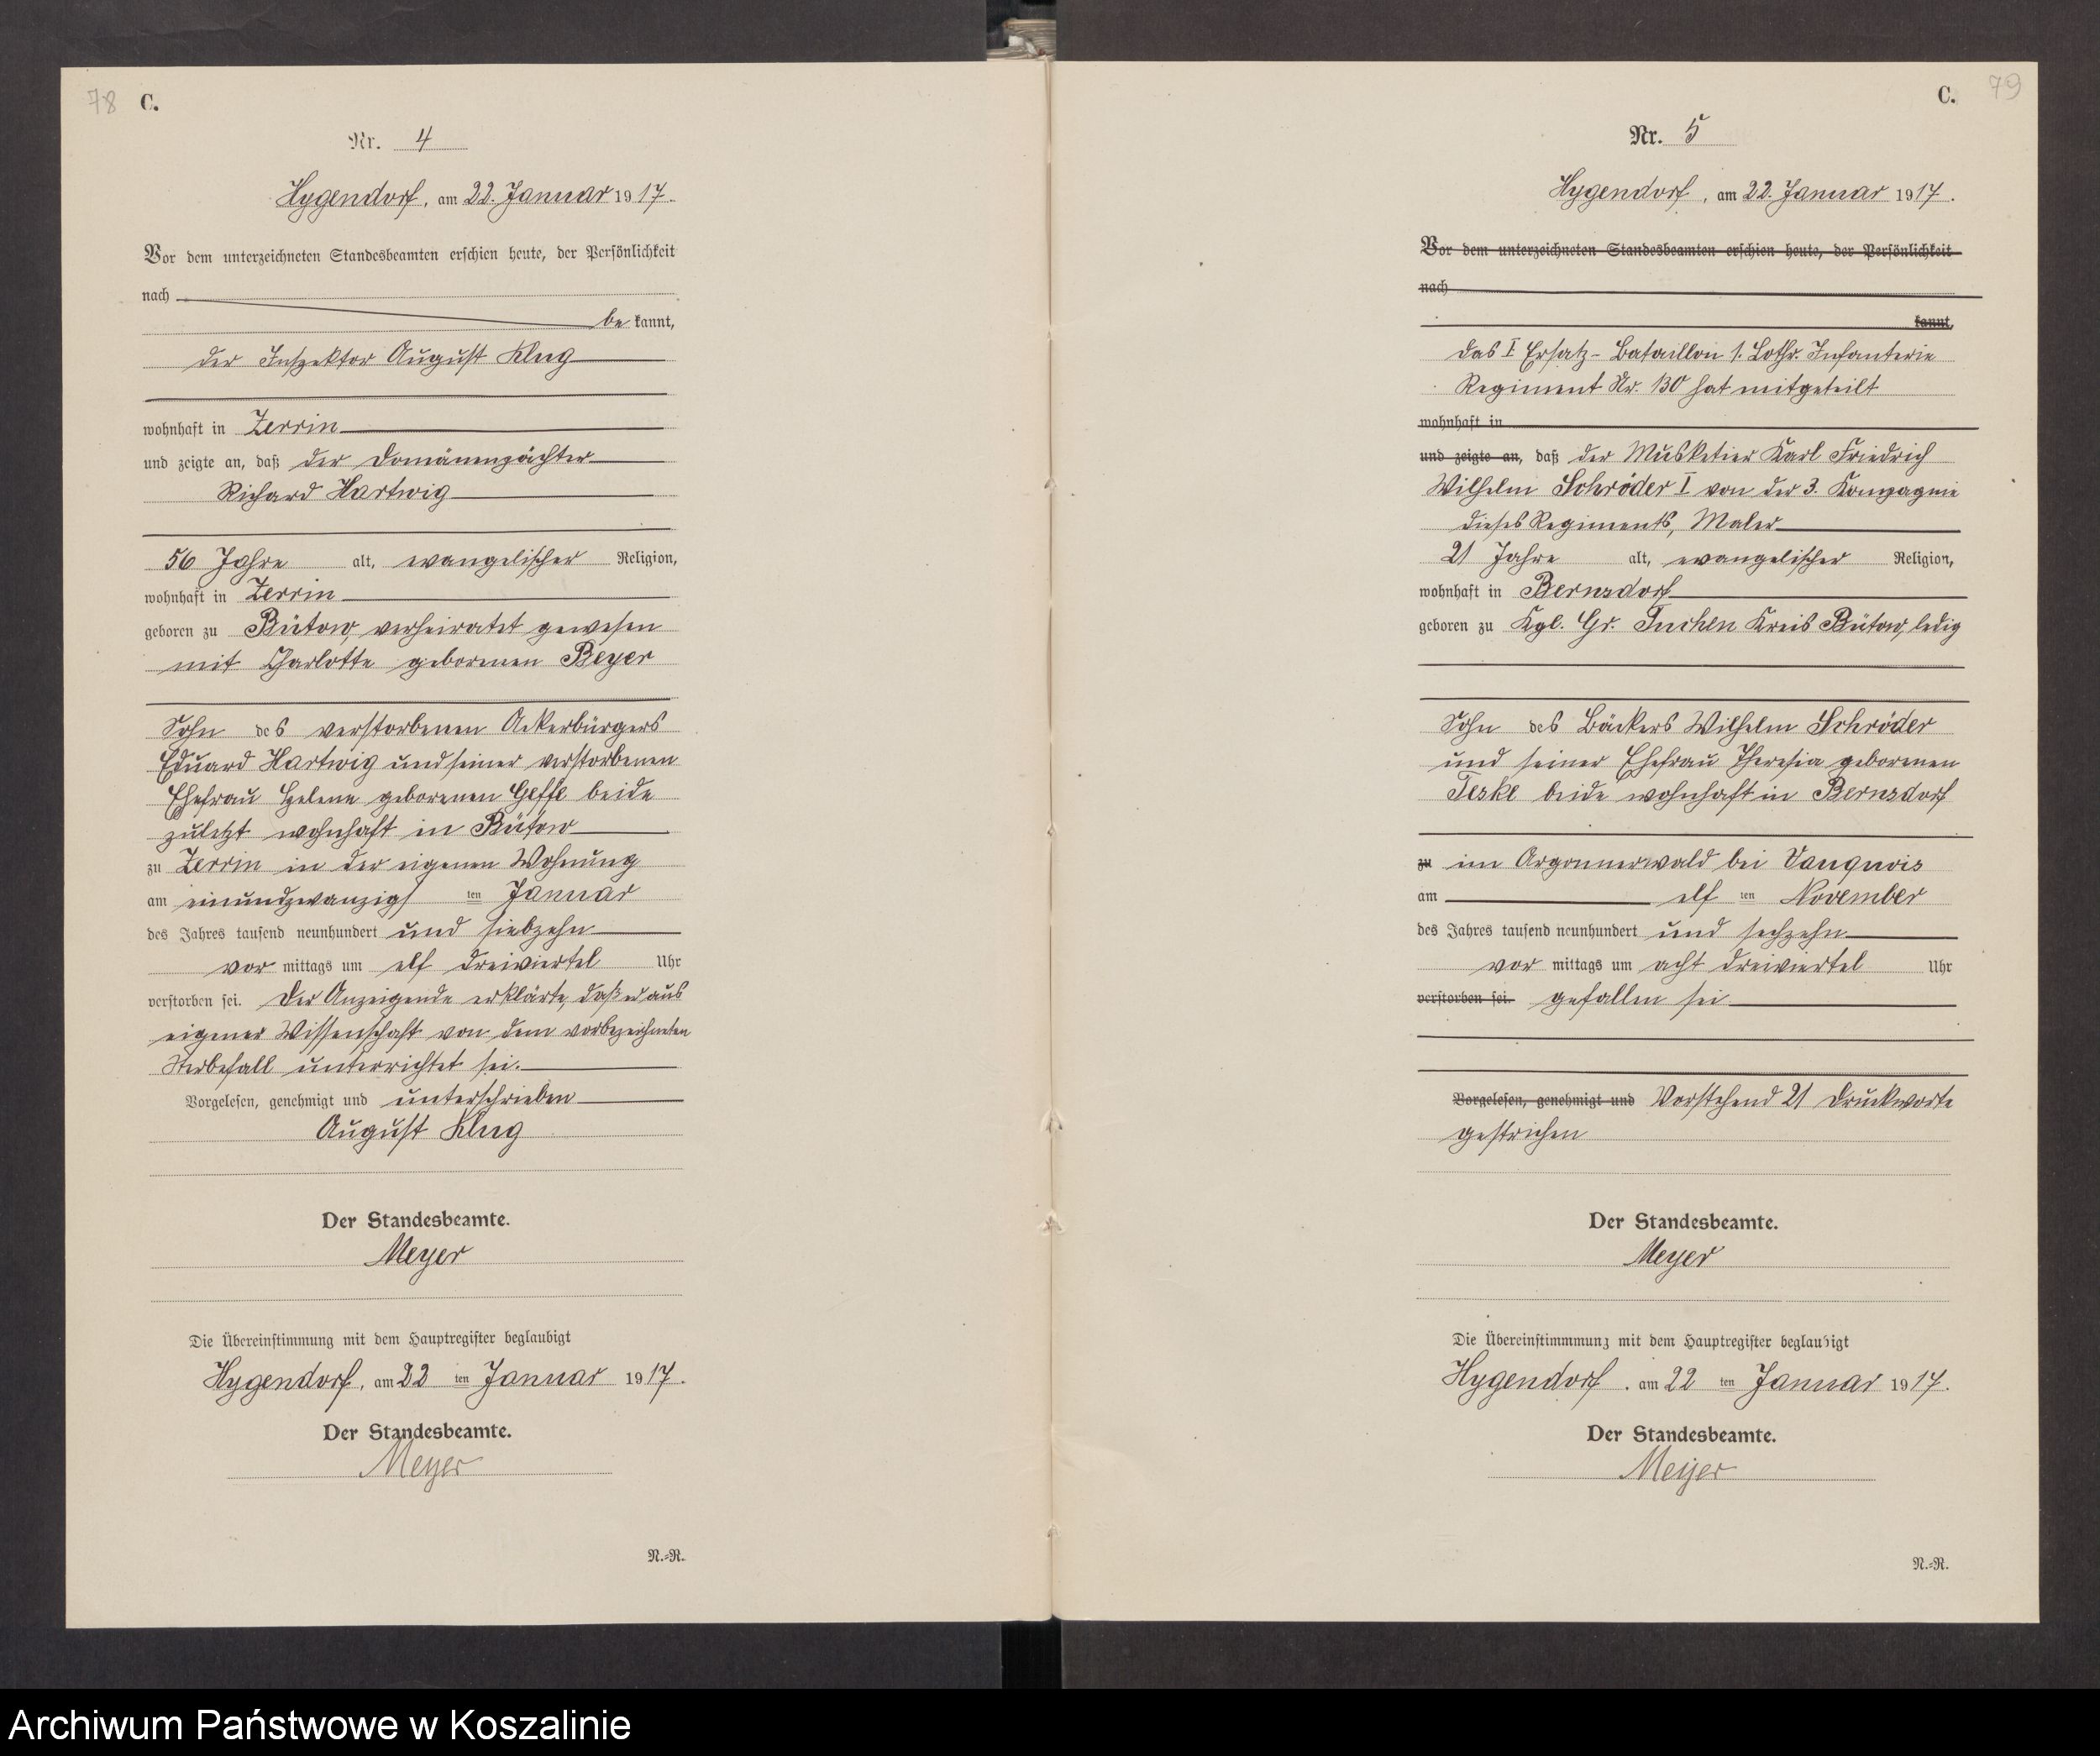 78 C.
Nr. 4
Hygendorf, am 22. Januar 1917.
Vor dem unterzeichneten Standesbeamten erschien heute, der Persönlichkeit
nach
be kannt,
der Inspektor August Klug
wohnhaft in Zerrin
und zeigte an, daß der Domänenpächter
Richard Hartwig
56 Jahre alt, evangelischer Religion,
wohnhaft in Zerrin
geboren zu Bütow, verheiratet gewesen
mit Charlotte geborenen Beyer
Sohn des verstorbenen Ackerbürgers
Eduard Hartwig und seiner verstorbenen
Ehefrau Helene geborenen Geffe beide
zuletzt wohnhaft in Bütow
zu Zerrin in der eigenen Wohnung
am einundzwanzigs ten Januar
des Jahres tausend neunhundert und siebzehn
vor mittags um elf dreiviertel Uhr
verstorben sei. Der Anzeigende erklärte, daß er aus
eigener Wissenschaft von dem vorbezeichneten
Sterbefall unterrichtet sei.
Vorgelesen, genehmigt und unterschrieben
August Klug
Der Standesbeamte.
Meyer
Die Übereinstimmung mit dem Hauptregister beglaubigt
Hygendorf, am 22 ten Januar 1917.
Der Standesbeamte.
Meyer
N.=R.
C. 79
Nr. 5
Hygendorf, am 22. Januar 1917.
Vor dem unterzeichneten Standesbeamten erschien heute, der Persönlichkeit
nach
kannt,
Das I. Ersatz-Bataillon 1. Lothr. Infanterie
Regiment Nr. 130 hat mitgeteilt
wohnhaft in
und zeigte an, daß der Musketier Karl Friedrich
Wilhelm Schröder I von der 3. Kompagnie
dieses Regiments, Maler
21 Jahre alt, evangelischer Religion,
wohnhaft in Bernsdorf
geboren zu Kgl. Gr. Tuchen Kreis Bütow, ledig
Sohn des Bäckers Wilhelm Schröder
und seiner Ehefrau Theresia geborenen
Teske beide wohnhaft in Bernsdorf
zu im Argonnerwald bei Vauquois
am elf ten November
des Jahres tausend neunhundert und sechzehn
vor mittags um acht dreiviertel Uhr
verstorben sei. gefallen sei
Vorgelesen, genehmigt und Vorstehend 21 Druckworte
gestrichen
Der Standesbeamte.
Meyer
Die Übereinstimmmung mit dem Hauptregister beglaubigt
Hygendorf. am 22 ten Januar 1917.
Der Standesbeamte.
Meyer
N.=R.
Archiwum Państwowe w Koszalinie